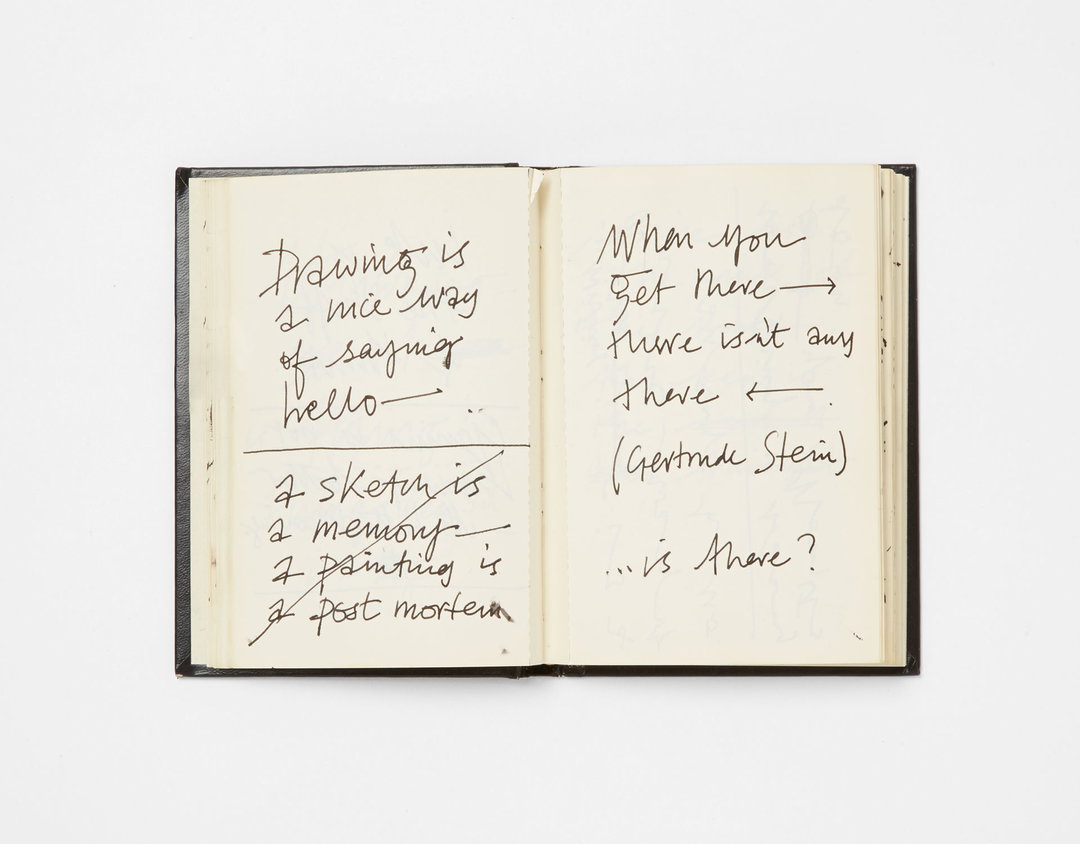 Drawing is
a nice way
of saying
hello →
a sketch is
a memory —
a painting is
a post mortem
When you
get there →
there isn't any
there ←
(Gertrude Stein)
...is there?